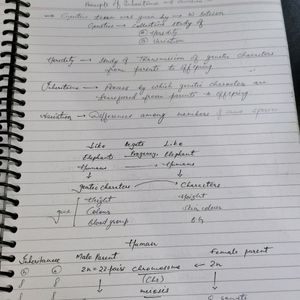 Principle of Inheritance
→ Genetics term was given by W Bateson
Genetics → Collective study of
(a) Heredity
(b) Variation
Heredity → Study of Transmission of genetic characters
from parents to offspring
Inheritance → Process by which genetic characters are
transferred from parents → offspring
Variation → Differences among members of same species
Like begets Like
Elephants Elephant
Humans → Humans
↓ ↓
genetic characters Characters
Height Height
gene Colour Skin colour
Blood group B.G
Human
Inheritance Male Parent Female parent
2n = 22 pairs chromosome ← 2n
↓ (Chr) ↓
meiosis